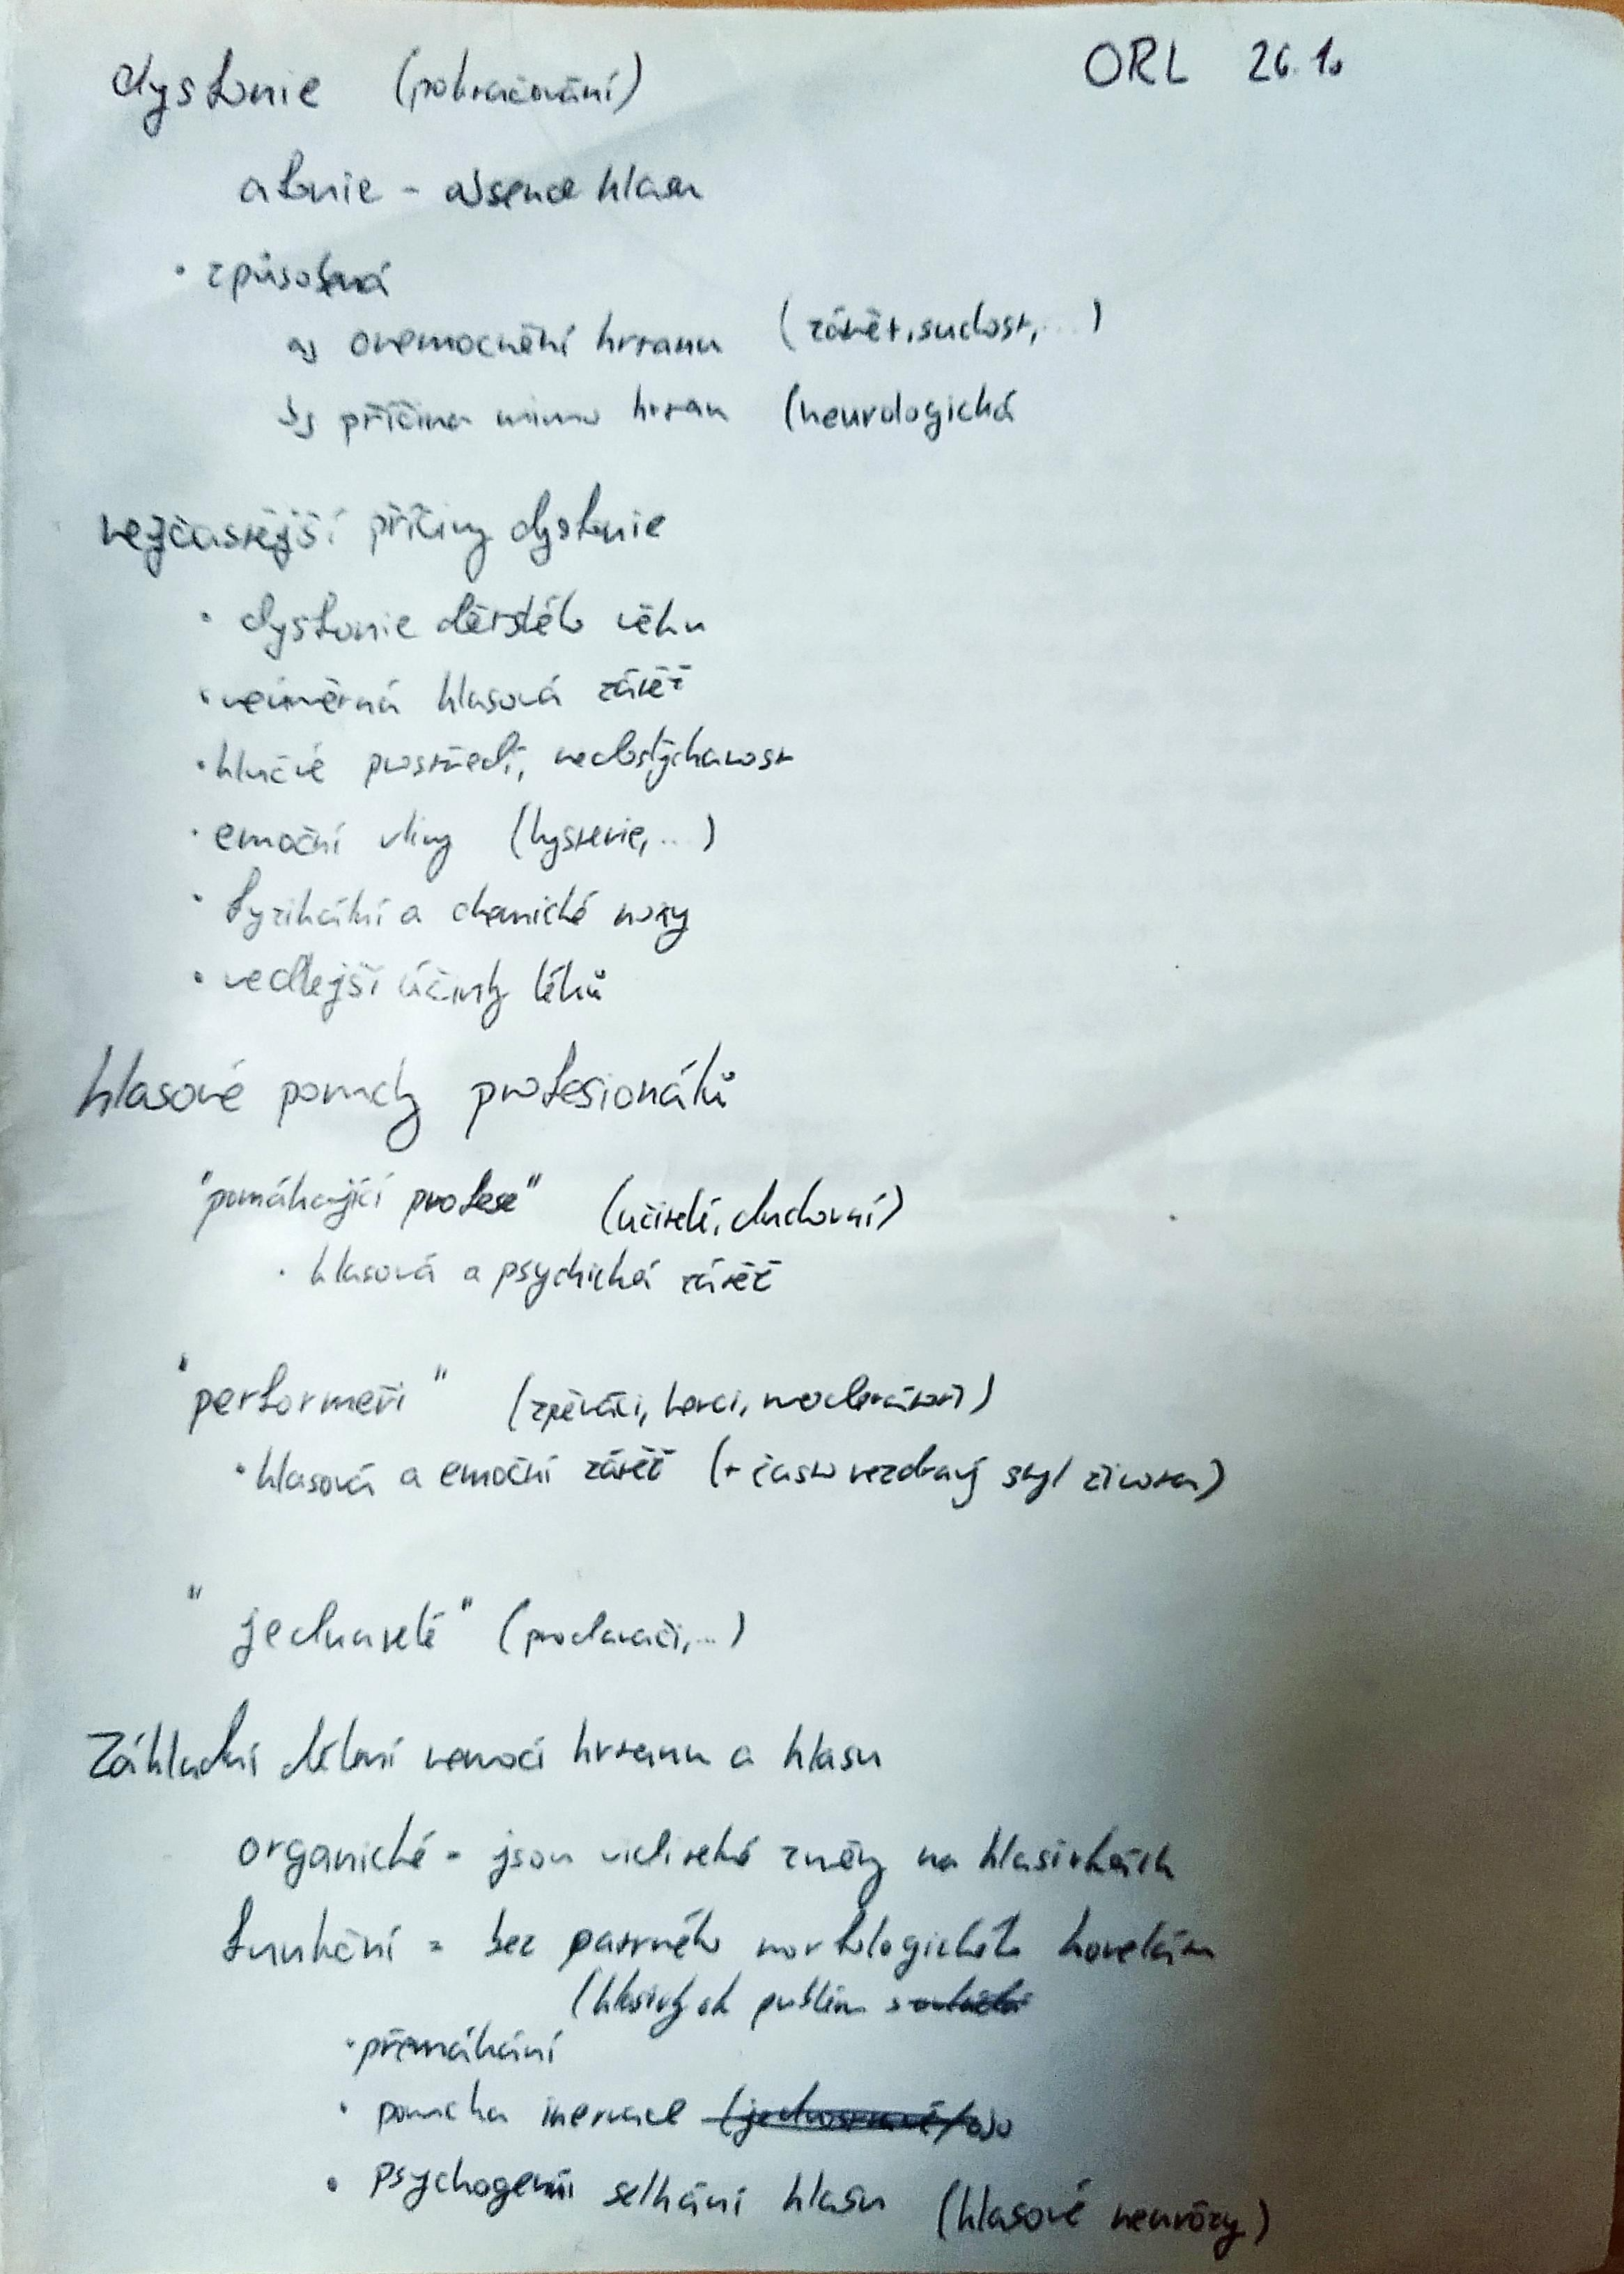 dysfonie (pokračování) ORL 26.10
afonie - absence hlasu
• způsobená
a) onemocnění hrtanu (zánět, suchost, ...)
b) příčina mimo hrtan (neurologická
nejčastější příčiny dysfonie
• dysfonie dětského věku
• neúměrná hlasová zátěž
• hlučné prostředí, nedoslýchavost
• emoční vlivy (hysterie, ...)
• fyzikální a chemické noxy
• vedlejší účinky léků
hlasové poruchy profesionálů
"pomáhající profese" (učitelé, duchovní)
• hlasová a psychická zátěž
"performeři" (zpěváci, herci, moderátoři)
• hlasová a emoční zátěž (+ často nezdravý styl života)
"jednatelé" (prodavači, ...)
Základní dělení nemocí hrtanu a hlasu
organické - jsou viditelné změny na hlasivkách
funkční = bez patrného morfologického korelátu
(hlasivky ok
• přemáhání
• porucha inervace
• psychogenní selhání hlasu (hlasové neurózy)